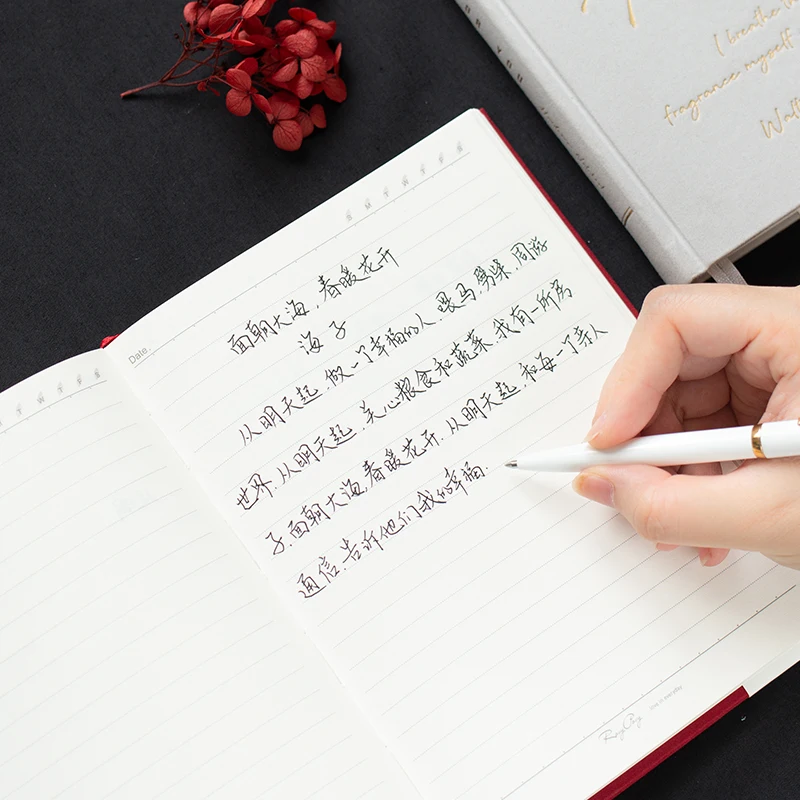 面朝大海,春暖花开
海子
从明天起,做一个幸福的人.喂马,劈柴,周游
世界.从明天起.关心粮食和蔬菜.我有一所房
子.面朝大海,春暖花开.从明天起.和每一个亲人
通信.告诉他们我的幸福.
Date
I breathe the
fragrance myself
Walt
OR YOU